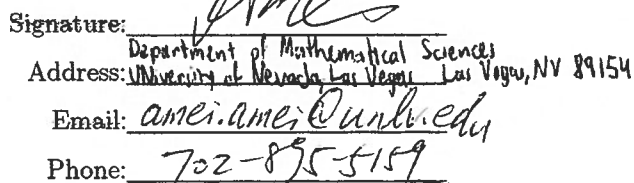 Signature:
Department of Mathematical Sciences
Address: University of Nevada, Las Vegas Las Vegas, NV 89154
Email: amei.amei@unlv.edu
Phone: 702-895-5159